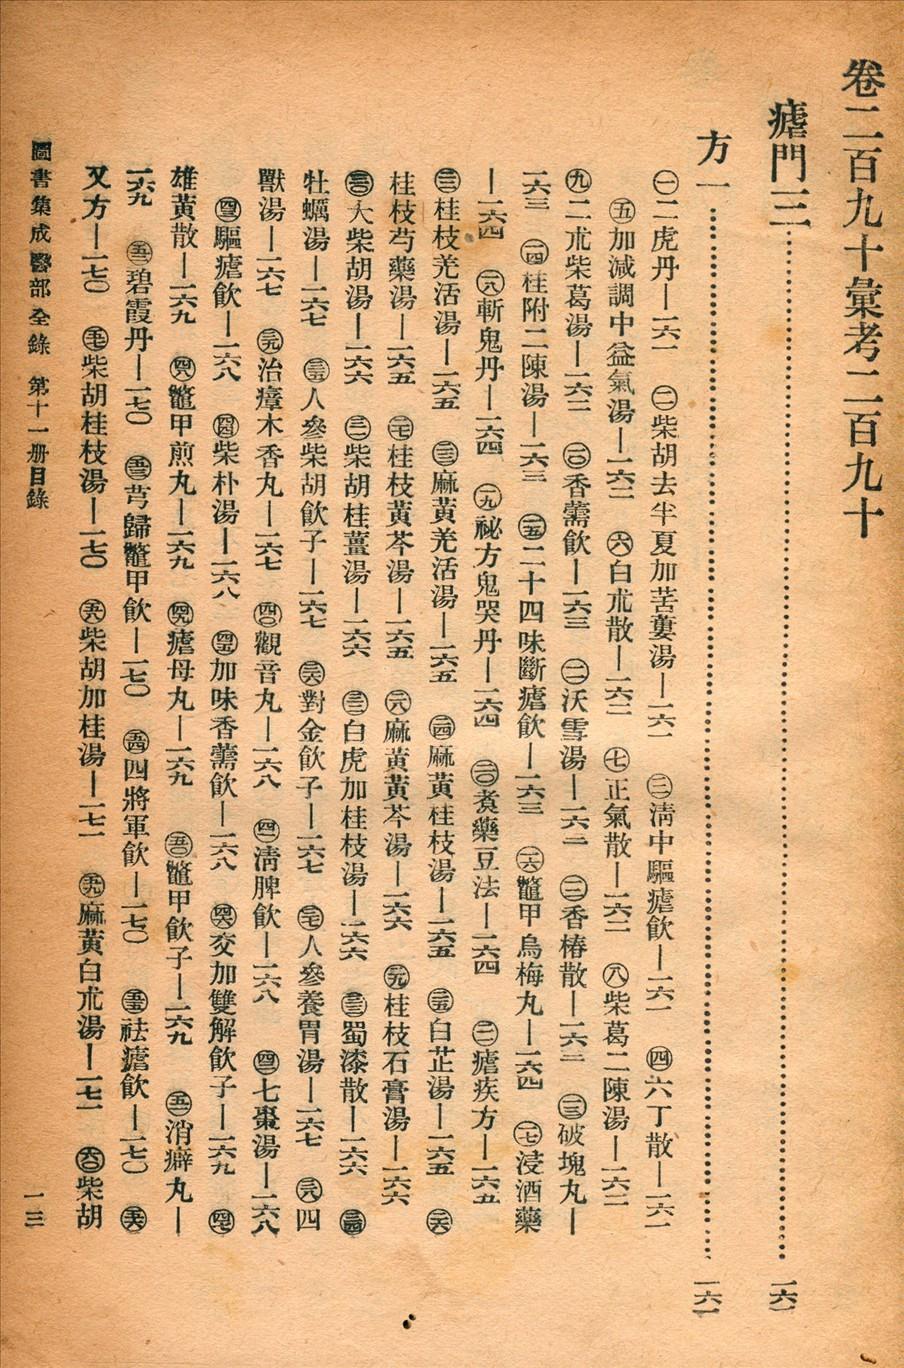 卷二百九十彙考二百九十
瘧門三……一六一
方一……一六一
㊀二虎丹—一六一　㊁柴胡去半夏加苦蔞湯—一六一　㊂淸中驅瘧飮—一六一　㊃六丁散—一六一
㊄加減調中益氣湯—一六二　㊅白朮散—一六二　㊆正氣散—一六二　㊇柴葛二陳湯—一六二
㊈二朮柴葛湯—一六二　㊉香薷飮—一六三　⑪沃雪湯—一六三　⑫香椿散—一六三　⑬破塊丸—
一六三　⑭桂附二陳湯—一六三　⑮二十四味斷瘧飮—一六三　⑯鼈甲烏梅丸—一六四　⑰浸酒藥
—一六四　⑱斬鬼丹—一六四　⑲祕方鬼哭丹—一六四　⑳煑藥豆法—一六四　㉑瘧疾方—一六五
㉒桂枝羌活湯—一六五　㉓麻黃羌活湯—一六五　㉔麻黃桂枝湯—一六五　㉕白芷湯—一六五　㉖
桂枝芍藥湯—一六五　㉗桂枝黃芩湯—一六五　㉘麻黃黃芩湯—一六六　㉙桂枝石膏湯—一六六
㉚大柴胡湯—一六六　㉛柴胡桂薑湯—一六六　㉜白虎加桂枝湯—一六六　㉝蜀漆散—一六六　㉞
牡蠣湯—一六七　㉟人參柴胡飮子—一六七　㊱對金飮子—一六七　㊲人參養胃湯—一六七　㊳四
獸湯—一六七　㊴治瘴木香丸—一六七　㊵觀音丸—一六八　㊶淸脾飮—一六八　㊷七棗湯—一六八
㊸驅瘧飮—一六八　㊹柴朴湯—一六八　㊺加味香薷飮—一六八　㊻交加雙解飮子—一六九　㊼
雄黃散—一六九　㊽鼈甲煎丸—一六九　㊾瘧母丸—一六九　㊿鼈甲飮子—一六九　(五一)消癖丸—
一六九　(五二)碧霞丹—一七〇　(五三)芎歸鼈甲飮—一七〇　(五四)四將軍飮—一七〇　(五五)祛瘧飮—一七〇　(五六)
又方—一七〇　(五七)柴胡桂枝湯—一七〇　(五八)柴胡加桂湯—一七一　(五九)麻黃白朮湯—一七一　(六〇)柴胡
圖書集成醫部全錄　第十一册目錄　一三